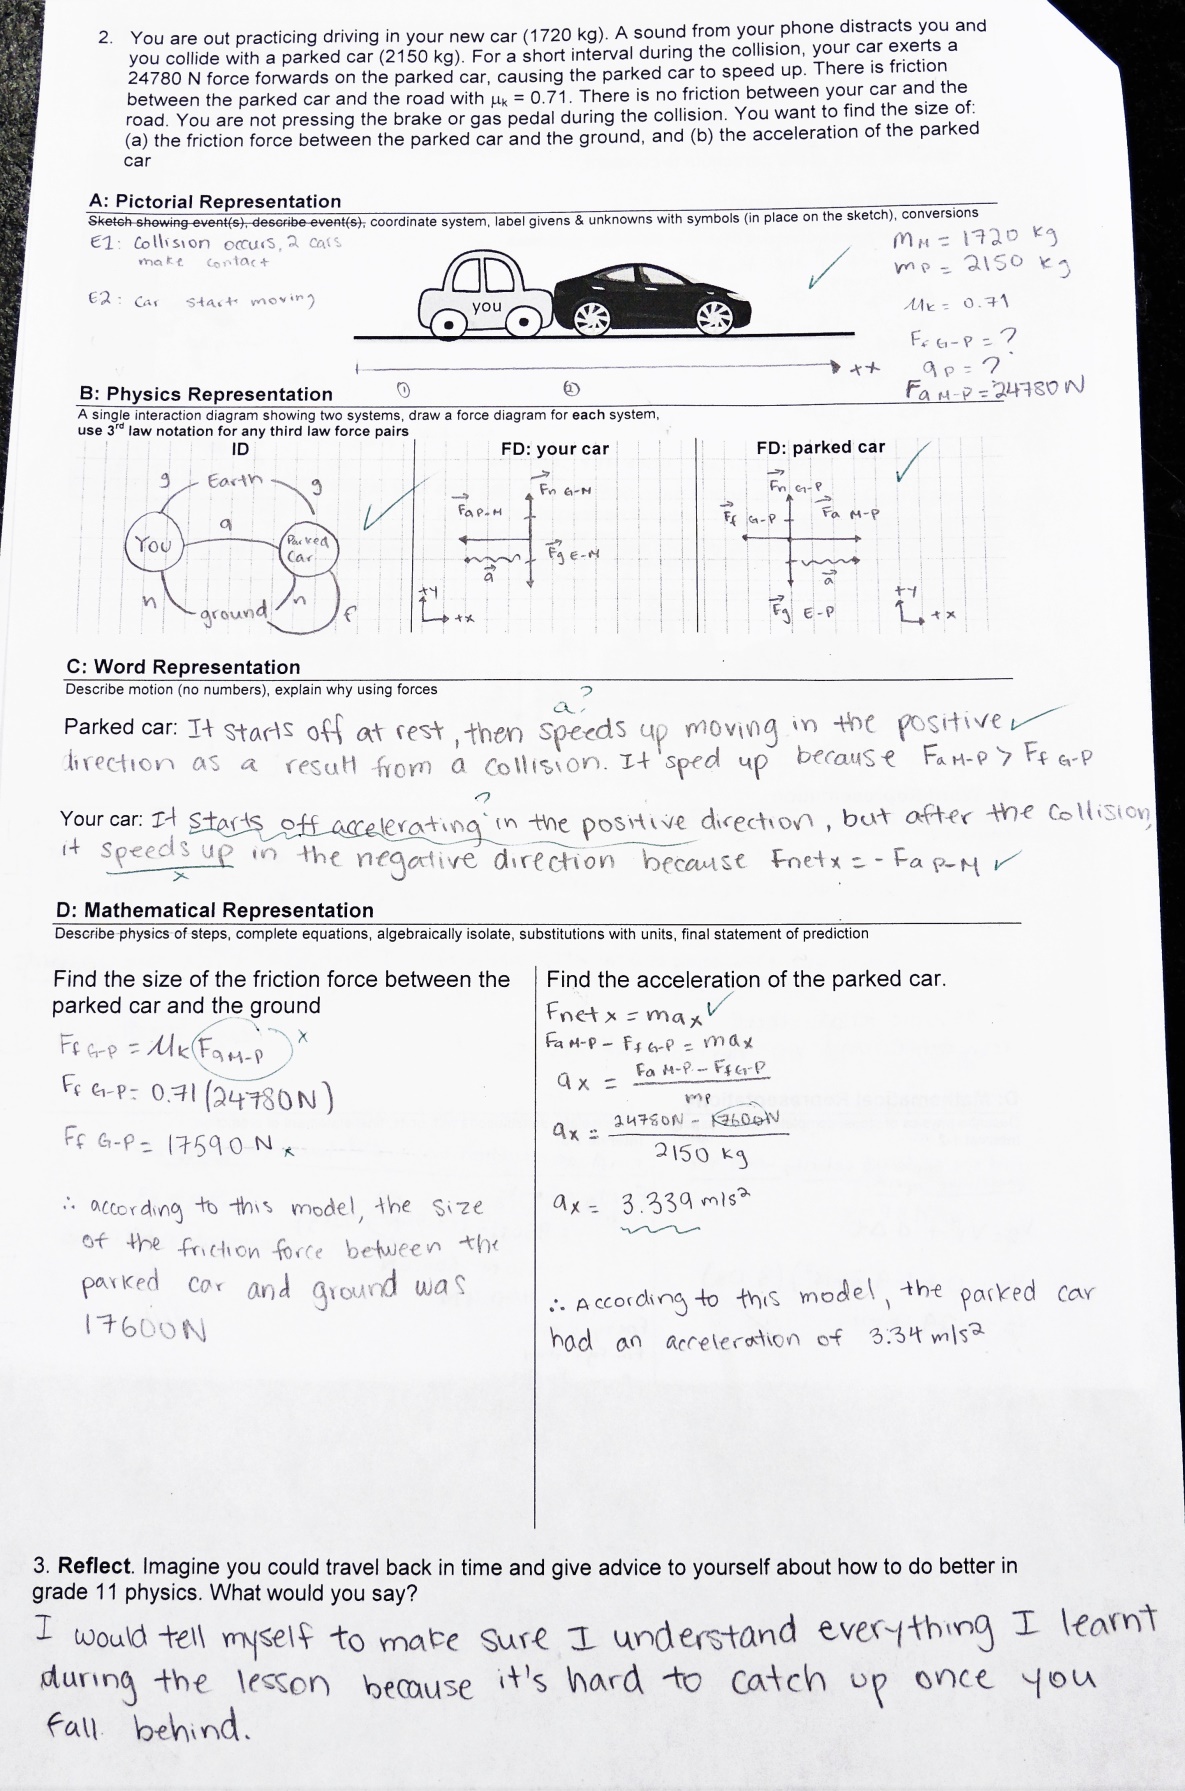 2. You are out practicing driving in your new car (1720 kg). A sound from your phone distracts you and
you collide with a parked car (2150 kg). For a short interval during the collision, your car exerts a
24780 N force forwards on the parked car, causing the parked car to speed up. There is friction
between the parked car and the road with μk = 0.71. There is no friction between your car and the
road. You are not pressing the brake or gas pedal during the collision. You want to find the size of:
(a) the friction force between the parked car and the ground, and (b) the acceleration of the parked
car
A: Pictorial Representation
Sketch showing event(s), describe event(s), coordinate system, label givens & unknowns with symbols (in place on the sketch), conversions
E1: Collision occurs, 2 cars
make contact
E2: Car starts moving
you
mM = 1720 kg
mP = 2150 kg
μk = 0.71
Ff G-P = ?
aP = ?
Fa M-P = 24780N
++
① ②
B: Physics Representation
A single interaction diagram showing two systems, draw a force diagram for each system,
use 3rd law notation for any third law force pairs
ID
g Earth g
a
You
Parked
Car
n ground n f
FD: your car
Fn G-M
Fa P-M
Fg E-M
a
+y
+x
FD: parked car
Fn G-P
Ff G-P Fa M-P
a
Fg E-P
+y
+x
C: Word Representation
Describe motion (no numbers), explain why using forces
a?
Parked car: It starts off at rest, then speeds up moving in the positive ✓
direction as a result from a collision. It sped up because Fa M-P > Ff G-P
?
Your car: It starts off accelerating in the positive direction, but after the collision,
it speeds up in the negative direction because Fnetx = - Fa P-M ✓
x
D: Mathematical Representation
Describe physics of steps, complete equations, algebraically isolate, substitutions with units, final statement of prediction
Find the size of the friction force between the
parked car and the ground
Ff G-P = μk(Fa M-P) x
Ff G-P = 0.71(24780N)
Ff G-P = 17590 N x
∴ according to this model, the size
of the friction force between the
parked car and ground was
17600N
Find the acceleration of the parked car.
Fnet x = max ✓
Fa M-P - Ff G-P = max
ax = Fa M-P - Ff G-P
mp
ax = 24780N - 17600N
2150 kg
ax = 3.339 m/s²
∴ According to this model, the parked car
had an acceleration of 3.34 m/s²
3. Reflect. Imagine you could travel back in time and give advice to yourself about how to do better in
grade 11 physics. What would you say?
I would tell myself to make sure I understand everything I learnt
during the lesson because it's hard to catch up once you
fall behind.